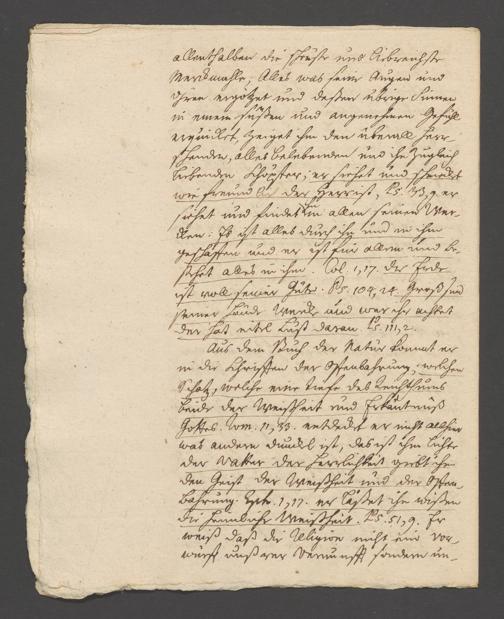 allenthalben die schönste und liebreichste
Merckmahle; Alles was seine Augen und
Ohren ergötzet und deßen übrige Sinnen
in einem süßen und angenehmen Gefühl
erquicket, zeiget ihm den überall herr-
schenden, alles belebenden und ihn zugleich
liebenden Schöpfer; er siehet und schmeckt
wie freundlich der Herr ist, Ps. 33,9 er
siehet und findet ihn in allen seinen Wer-
cken: Es ist alles durch ihn und in ihm
geschaffen und er ist für allem und be-
stehet alles in ihm. Col. 1,17. der Erde
ist voll seiner Güte. Ps. 104,24. Groß sind
seiner Hände Werck und wer ihr achtet
der hat eitel Lust daran. Ps. 111,2.
Aus dem Buch der Natur kommt er
in die Schrifften der Offenbahrung, welchen
Schatz, welche eine Tiefe des Reichthums
beide der Weißheit und Erkäntnüß
Gottes. Rom. 11,33. entdecket er nicht allhier
was andern dunckel ist, das ist ihm Lichte
der Vatter der Herrlichkeit giebt ihm
den Geist der Weißheit und der Offen-
bahrung. Eph. 1,17. er läßet ihn wißen
die heimliche Weißheit. Ps. 51,9. Er
weiß daß die Religion nicht nur Vor-
würff unsrer Vernunfft sondern un-